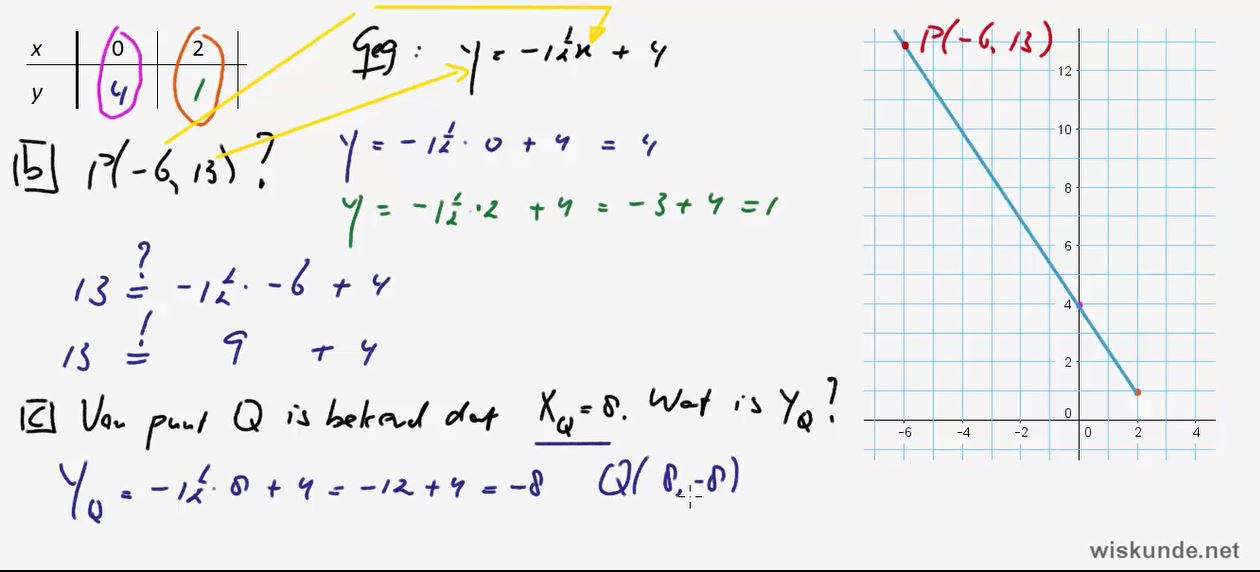 x 0 2
y 4 1
Geg: y = -1½x + 4
y = -1½ · 0 + 4 = 4
y = -1½ · 2 + 4 = -3 + 4 = 1
b P(-6, 13)?
?
13 = -1½ · -6 + 4
!
13 = 9 + 4
c Van punt Q is bekend dat X_Q = 8. Wat is Y_Q?
Y_Q = -1½ · 8 + 4 = -12 + 4 = -8 Q(8, -8)
P(-6, 13)
12
10
8
6
4
2
0
-6 -4 -2 0 2 4
wiskunde.net